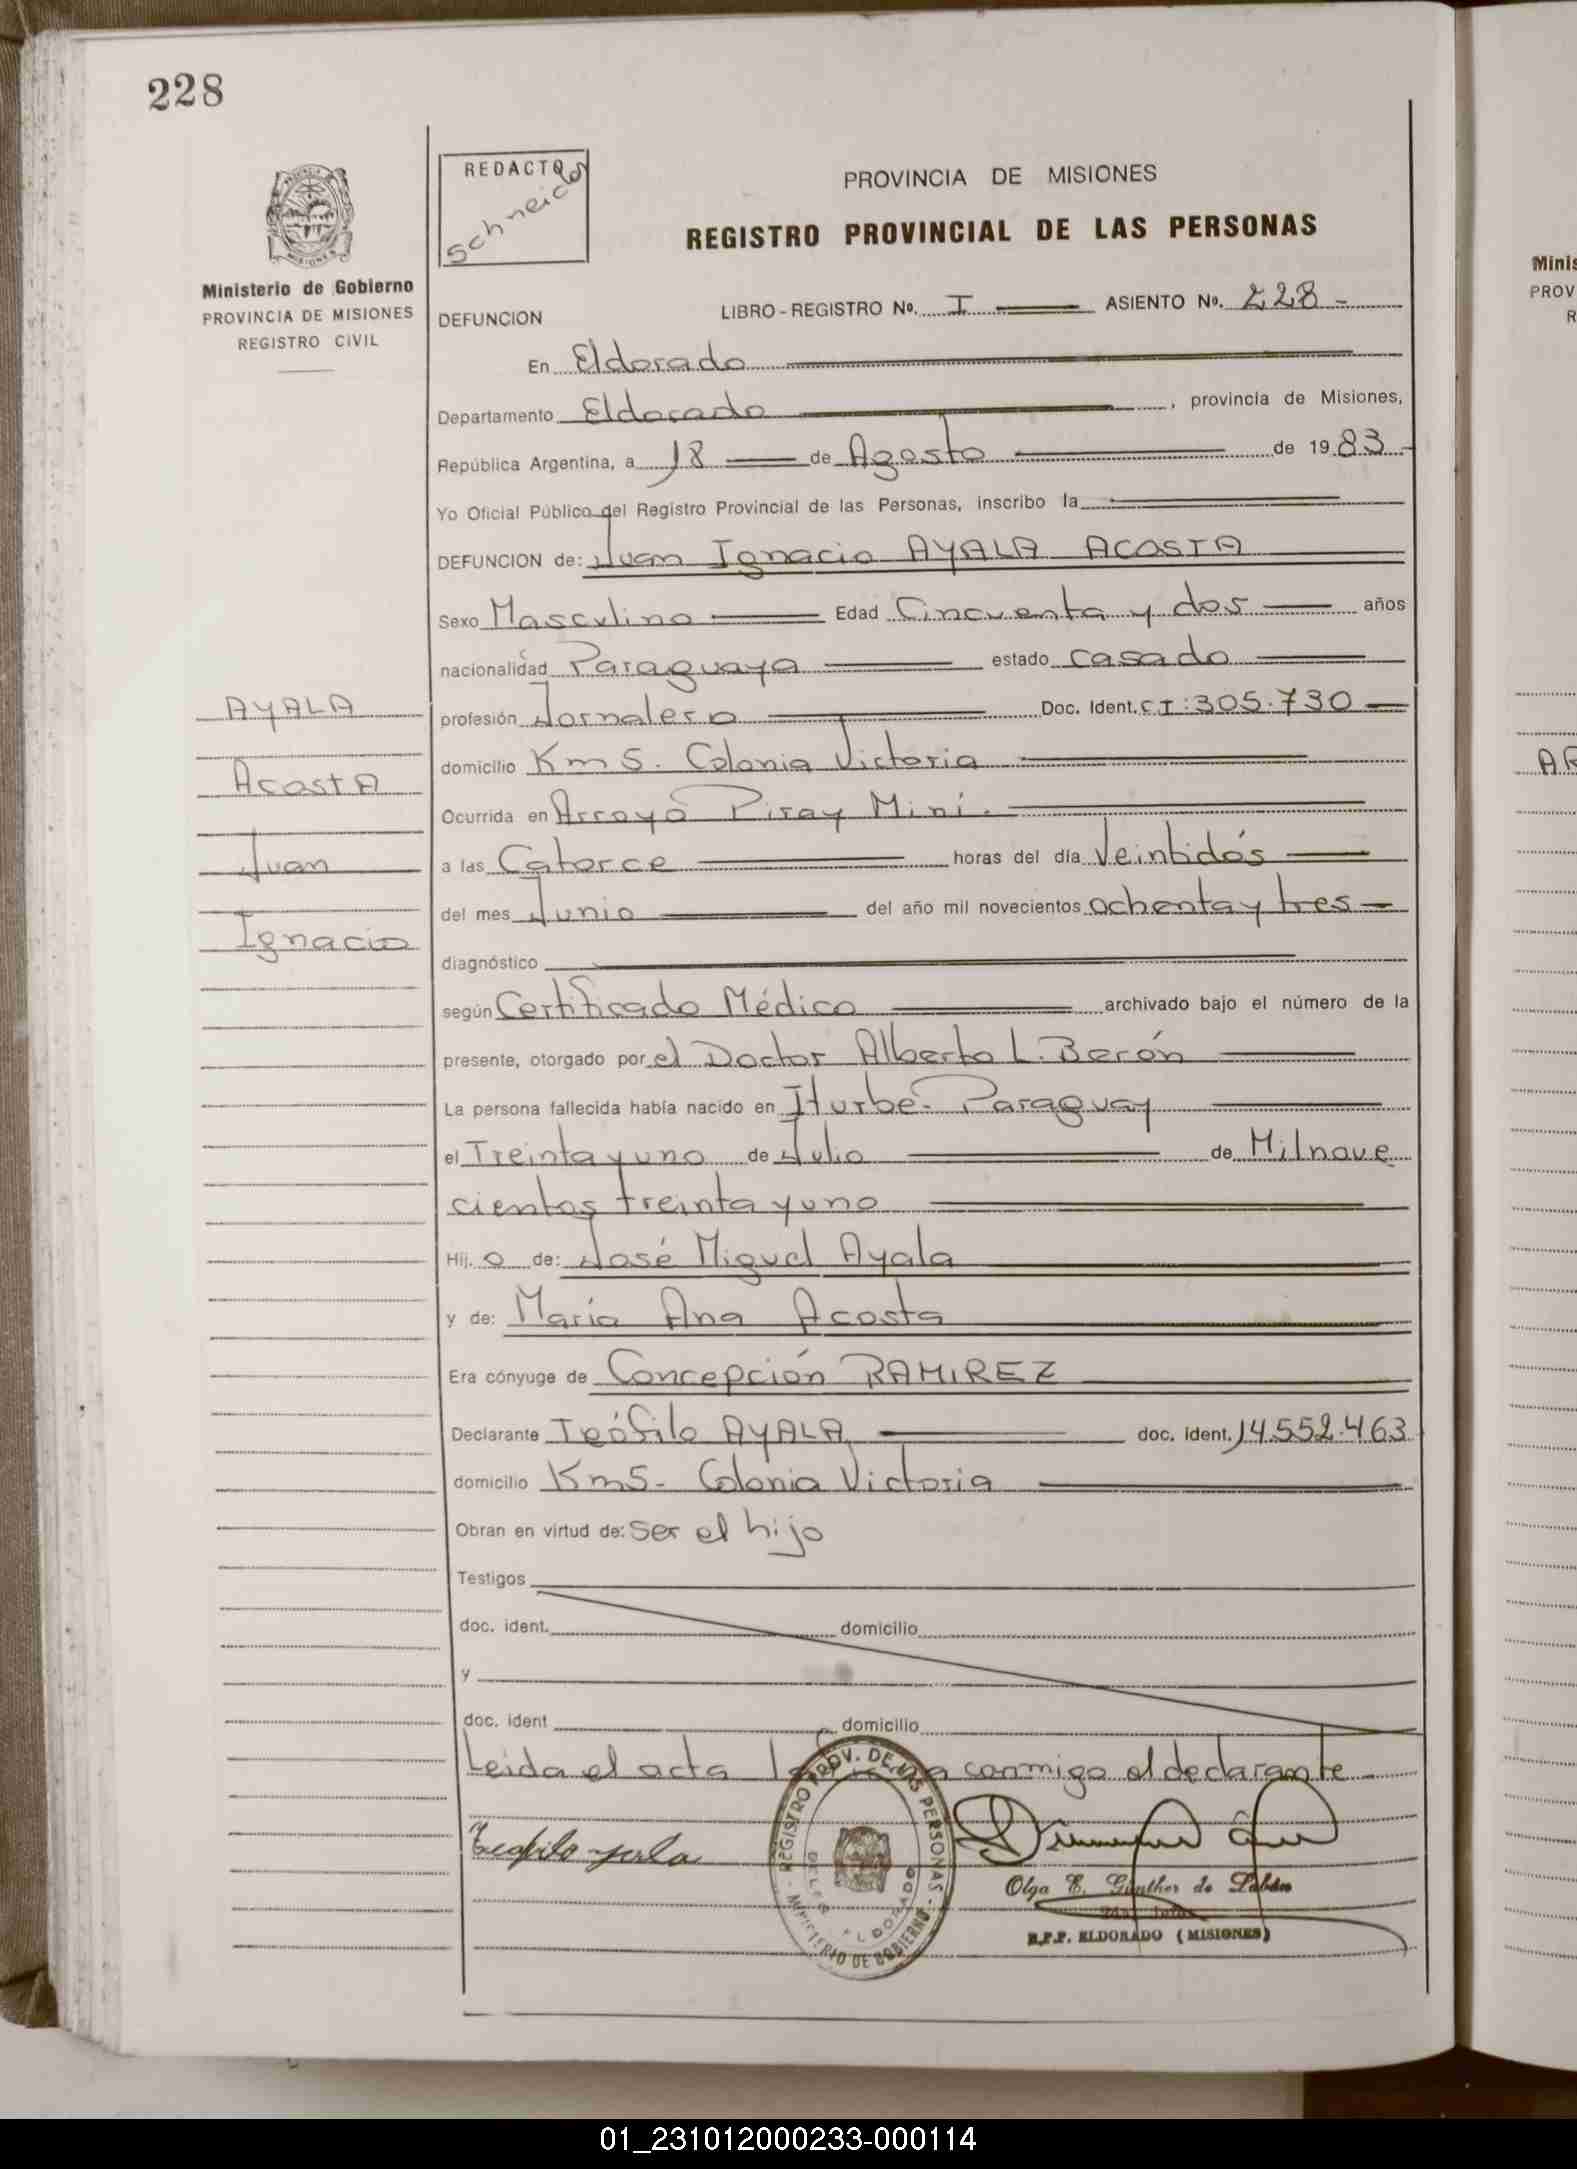 228
REDACTO
Schneider
PROVINCIA DE MISIONES
REGISTRO PROVINCIAL DE LAS PERSONAS
Ministerio de Gobierno
PROVINCIA DE MISIONES
REGISTRO CIVIL
DEFUNCION LIBRO - REGISTRO No. I ASIENTO No. 228 -
En Eldorado
Departamento Eldorado , provincia de Misiones,
República Argentina, a 18 de Agosto de 1983 -
Yo Oficial Público del Registro Provincial de las Personas, inscribo la
DEFUNCION de: Juan Ignacio AYALA ACOSTA
Sexo Masculino Edad Cincuenta y dos años
nacionalidad Paraguaya estado casado
profesión Jornalero Doc. Ident. CI: 305.730
domicilio Km 5. Colonia Victoria
Ocurrida en Arroyo Piray Miní.
a las Catorce horas del día Veintidós
del mes Junio del año mil novecientos ochenta y tres
diagnóstico
según Certificado Médico archivado bajo el número de la
presente, otorgado por el Doctor Alberto L. Berón
La persona fallecida había nacido en Iturbe - Paraguay
el Treinta y uno de Julio de Milnove
cientos treinta y uno
Hij o de: José Miguel Ayala
y de: María Ana Acosta
Era cónyuge de Concepción RAMIREZ
Declarante Teófilo AYALA doc. ident. 14.552.463
domicilio Km 5 - Colonia Victoria
Obran en virtud de: Ser el hijo
Testigos
doc. ident. domicilio
y
doc. ident domicilio
Leida el acta la conmigo el declarante
AYALA
Acosta
Juan
Ignacio
REGISTRO PROV. DE LAS PERSONAS
MINISTERIO DE GOBIERNO
DELEG ELDORADO
Olga E. Günther de
R.P.P. ELDORADO (MISIONES)
Minis
PROV
R
AR
01_231012000233-000114